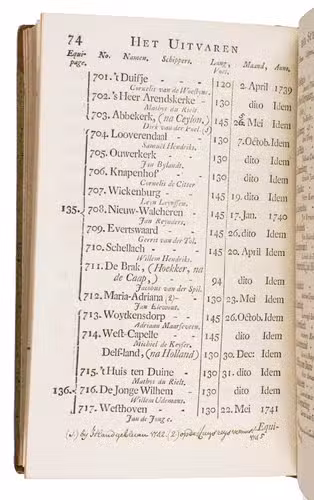 74 HET UITVAREN
Equipage. No. Namen. Schippers. Lang, Voet. Maand, Anno.
701. 't Duifje - - 120 2. April 1739
Cornelis van de Woestyne.
702. 's Heer Arendskerke - 130 dito Idem
Mathys du Rielt.
703. Abbekerk, (na Ceylon,) 145 26. Mei Idem
704. Looverendaal - - 130 7. Octob. Idem
Samuel Hendriks.
705. Ouwerkerk - - 130 dito Idem
Jan Bylandt.
706. Knapenhof - - 130 dito Idem
Cornelis de Citter
707. Wickenburg - - 145 19. dito Idem
Leyn Leynssen.
135. 708. Nieuw-Walcheren - 145 17. Jan. 1740
Jan Reynders.
709. Everswaard - 145 26. dito Idem
Gerrit van Tol.
710. Schellach - - 145 20. April Idem
Willem Hendriks.
711. De Brak, (Hoekker, na
de Caap,) - - 94 dito Idem
Jacobus van der Spil.
712. Maria-Adriana - 130 23. Mei Idem
Jan Eliewout.
713. Woytkensdorp - 145 26. Octob. Idem
Adriaan Maarseveen.
714. West-Capelle - 145 dito Idem
Michiel de Keyser.
Delfsland, (na Holland) 130 30. Dec Idem
715. 't Huis ten Duine - 130 31. dito Idem
Mathys du Rielt.
136. 716. De Jonge Wilhem - 130 dito Idem
Willem Udemans.
717. Westhoven - 130 22. Mei 1741
Jan de Jonge.
Equi-